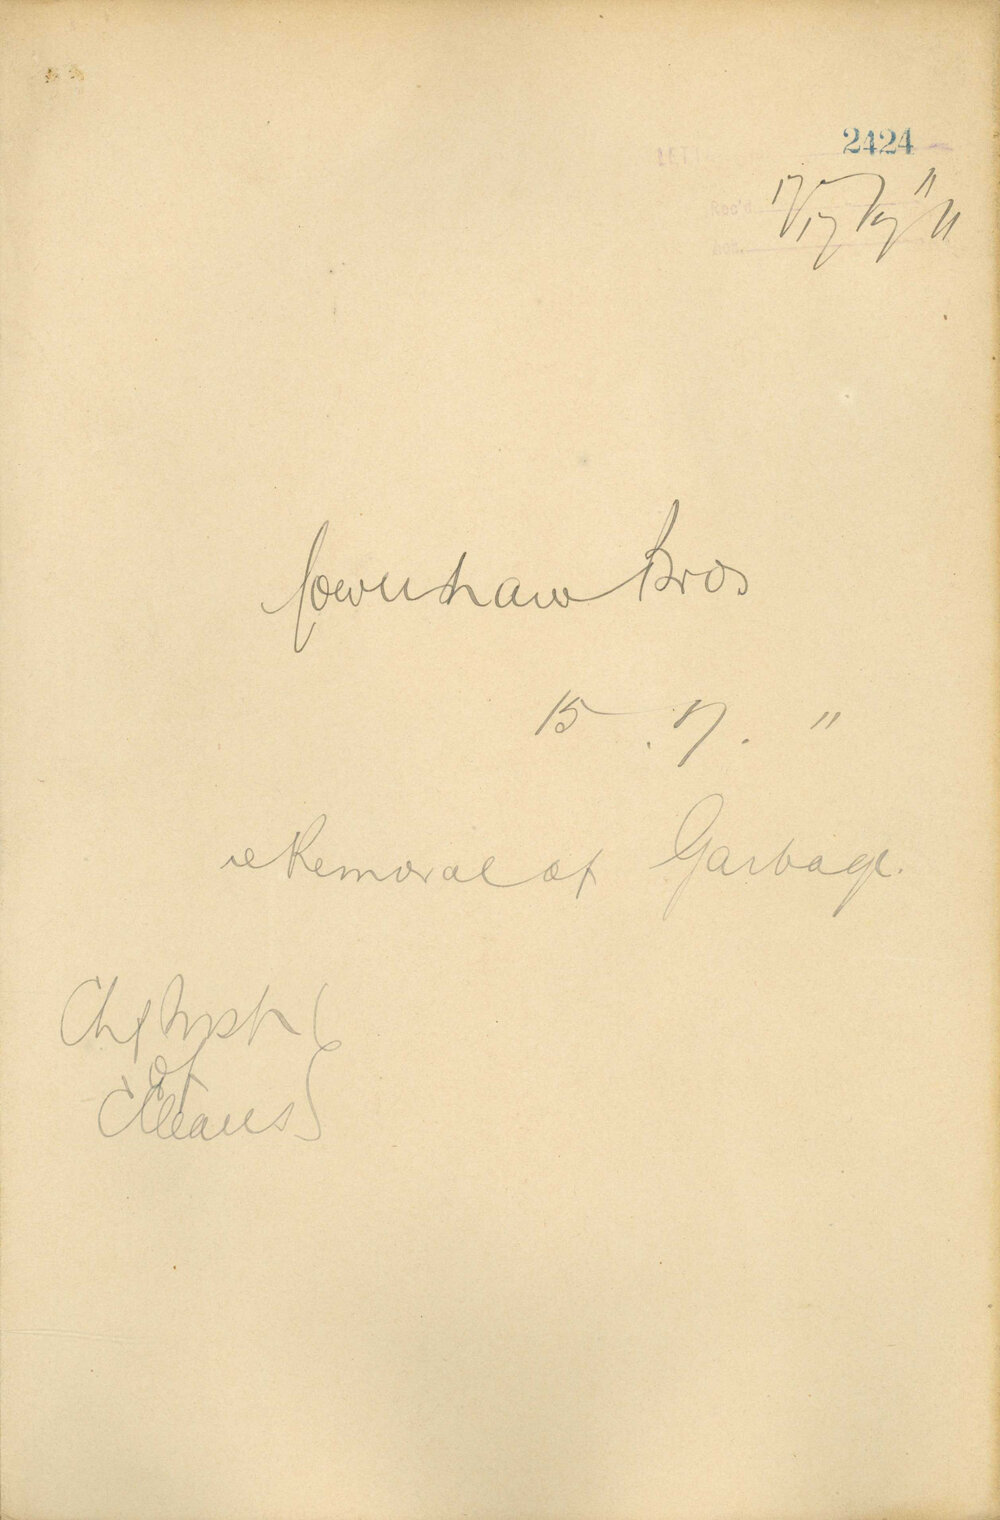 2424
Rec'd
17/7/11
Bros
15.7.11
re Removal of Garbage.
Chf Insptr
of
Cleans